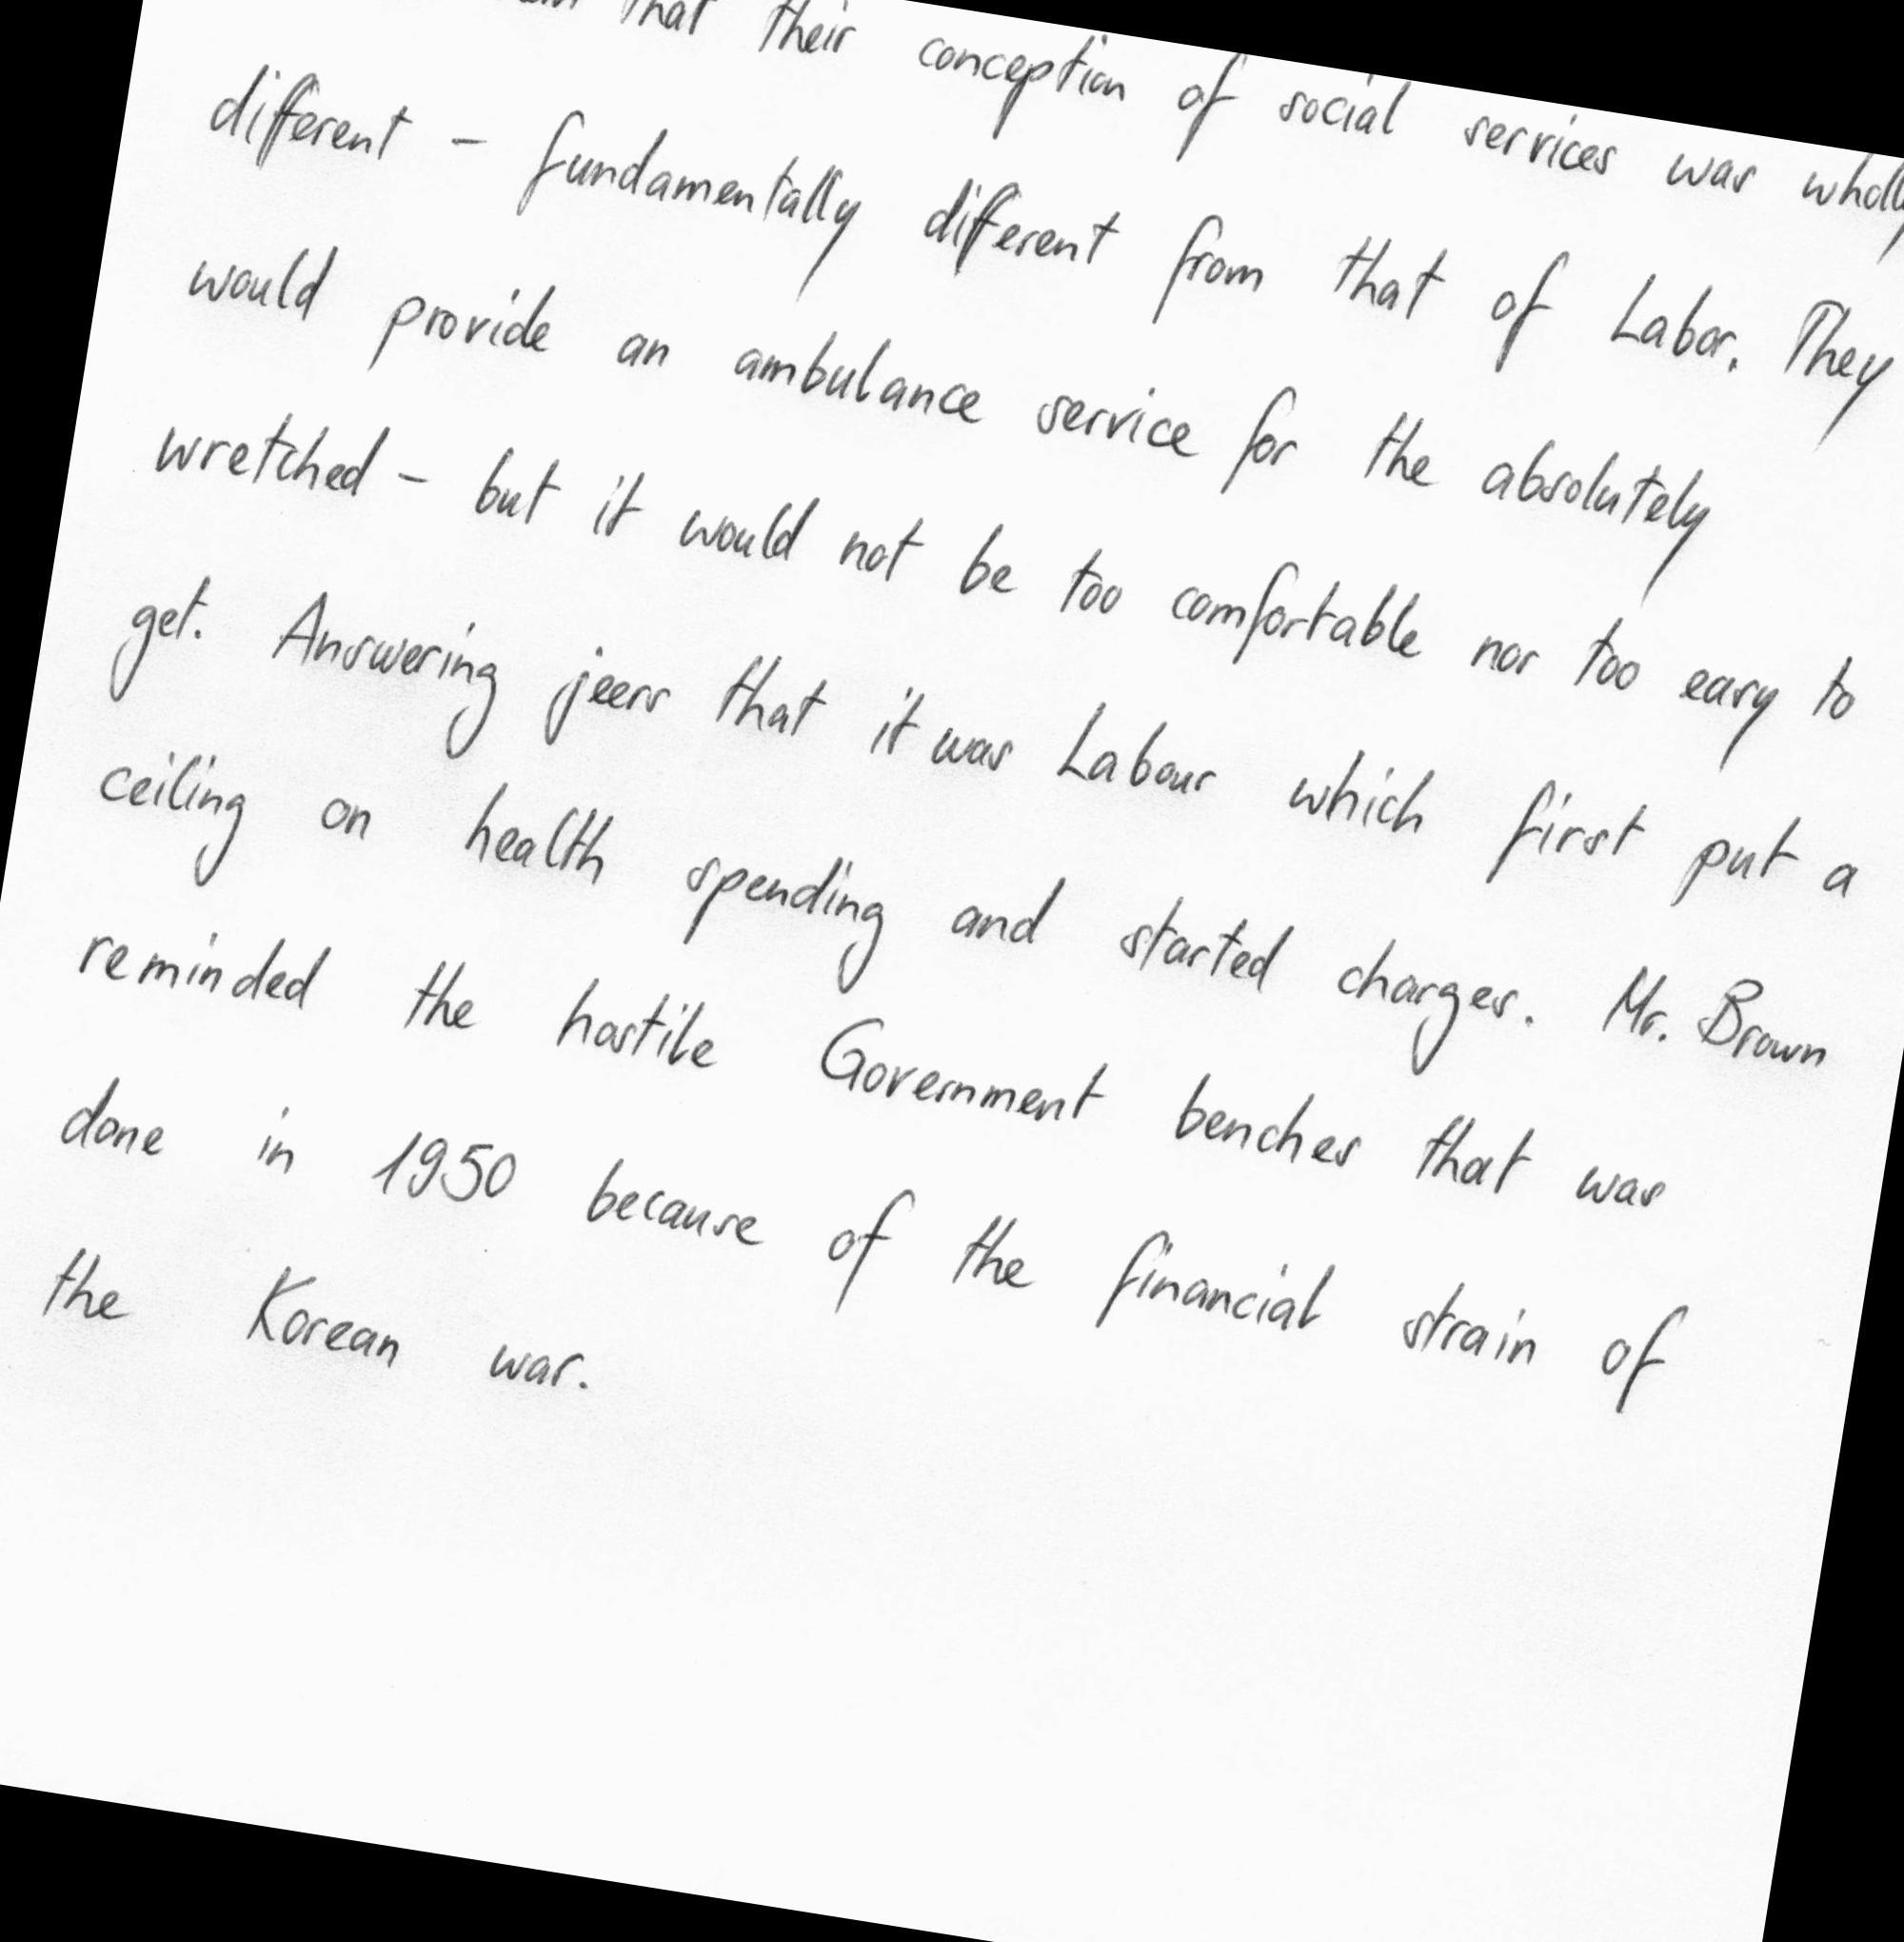 that their conception of social services was wholly
different - fundamentally different from that of Labor. They
would provide an ambulance service for the absolutely
wretched - but it would not be too comfortable nor too easy to
get. Answering jeers that it was Labour which first put a
ceiling on health spending and started charges. Mr. Brown
reminded the hostile Government benches that was
done in 1950 because of the financial strain of
the Korean war.